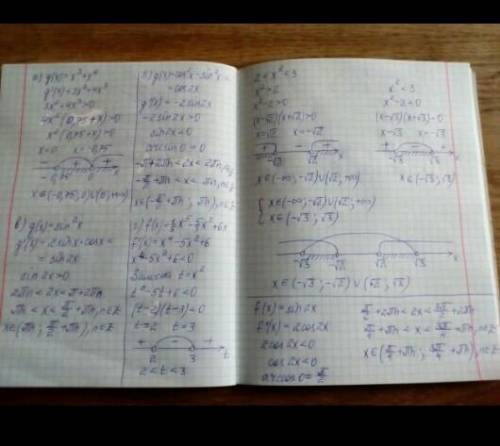 а) g(x)=x³+x⁴
g'(x)=3x²+4x³
3x²+4x³>0
4x²(0,75+x)>0
x²(0,75+x)>0
x=0 x=-0,75
- + +
-0,75 0 x
x∈(-0,75;0)∪(0;+∞)
в) g(x)=sin²x
g'(x)=2sinx·cosx=
=sin2x
sin2x>0
2πn<2x<π+2πn
πn<x<π/2+πn, n∈Z
x∈(πn; π/2+πn), n∈Z
g(x)=cos²x-sin²x=
=cos2x
g'(x)=-2sin2x
-2sin2x>0
sin2x<0
arcsin0=0
-π+2πn<2x<2πn, n∈Z
-π/2+πn<x<πn, n∈Z
x∈(-π/2+πn; πn), n∈Z
f'(x)=x⁴-5x²+6
x⁴-5x²+6<0
Замена t=x²
t²-5t+6<0
(t-2)(t-3)=0
t=2 t=3
+ - +
2 3 t
2<t<3
2<x²<3
x²>2
x²-2>0
(x-√2)(x+√2)>0
x=√2 x=-√2
+ - +
-√2 √2 x
x∈(-∞;-√2)∪(√2;+∞)
x²<3
(x-√3)(x+√3)=0
x=√3 x=-√3
+ - +
-√3 √3 x
x∈(-√3;√3)
{ x∈(-∞;-√2)∪(√2;+∞)
x∈(-√3;√3)
-√3 -√2 √2 √3 x
x∈(-√3;-√2)∪(√2;√3)
f(x)=sin2x
f'(x)=2cos2x
2cos2x<0
cos2x<0
arccos0=π/2
π/2+2πn<2x<3π/2+2πn
π/4+πn<x<3π/4+πn, n∈Z
x∈(π/4+πn; 3π/4+πn), n∈Z